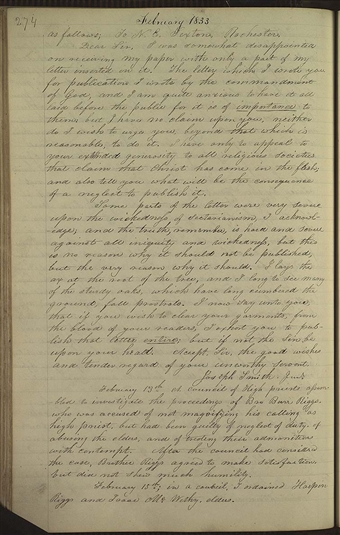 274 February 1833
as follows; To N. E. Seaton, Rochester.
Dear Sir, I was somewhat disappointed
on receiving my paper with only a part of my
letter inserted in it. The letter which I wrote you
for publication I wrote by the commandment
of God, and I am quit anxious to have it all
laid before the public for it is of importance to
them; but I have no claim upon you, neither
do I wish to urge you, beyond that which is
reasonable, to do it. I have only to appeal to
your extended generosity to all religious societies
that claim that Christ has come in the flesh,
and also tell you what will be the consequence
of a neglect to publish it.
Some parts of the letter were very severe
upon the wickedness of sectarianism, I acknowl-
edge; and the truth, remember, is hard and severe
against all iniquity and wickedness, but this
is no reason why it should not be published,
but the very reason why it should. I lay the
ax at the root of the tree, and I long to see many
of the sturdy oaks, which have long cumbered the
ground, fall prostrate. I now say unto you,
that if you wish to clear your garments, from
the blood of your readers, I exhort you to pub-
lish that letter entire; but if not the sin be
upon your head. Accept, Sir, the good wishes
and tender regard of your unworthy servant.
Joseph Smith Jun.
February 13th A council of High priests assem
bled to investigate the proceedings of Bro Burr Riggs,
who was accused of not magnifying his calling as
high priest, but had been guilty of neglect of duty, of
abusing the elders, and of treating their admonitions
with contempt. After the council had considered
the case, Brother Riggs agreed to make satisfaction.
But did not shew much humility.
February 15th, in a council, I ordained Harpon
Riggs and Isaac Mc Withy, elders.